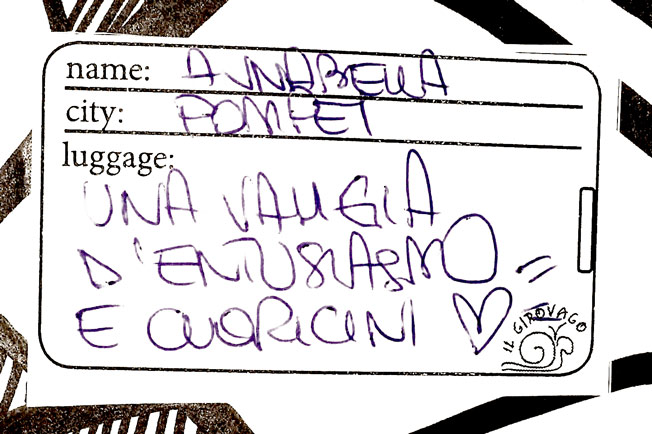 name: ANNABELLA
city: POMPEI
luggage:
UNA VALIGIA
D'ENTUSIASMO =
E CUORICINI ♡
IL GIROVAGO